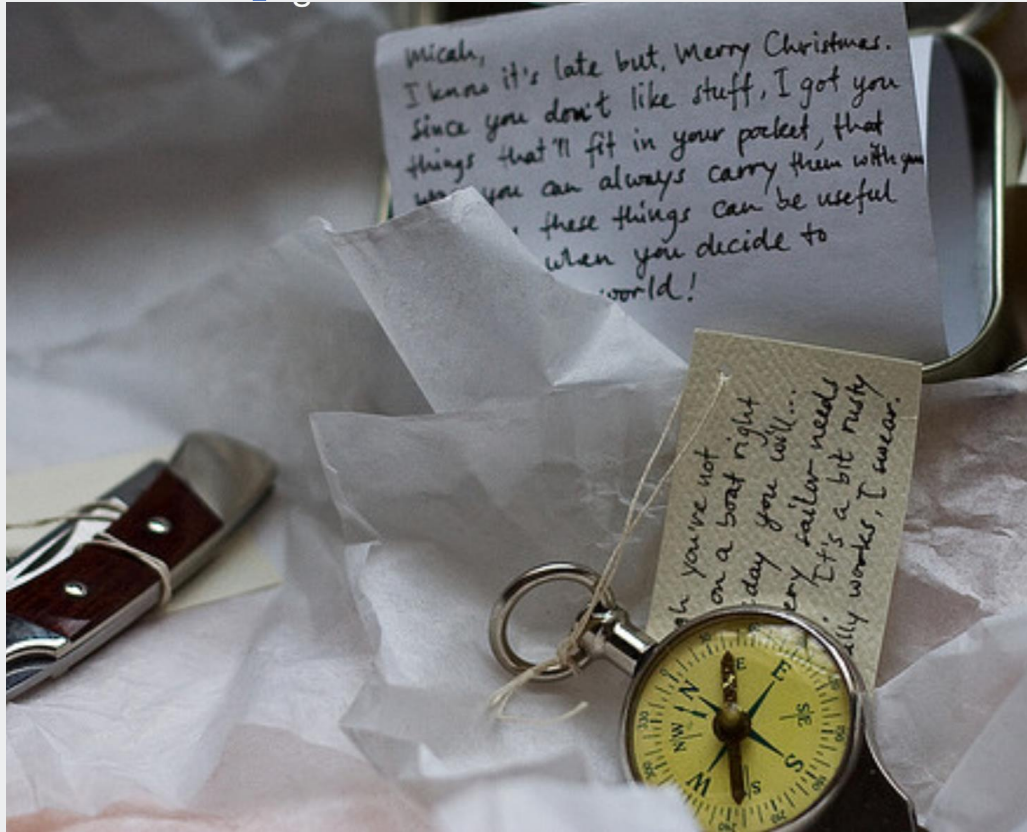 Micah,
I know it's late but, Merry Christmas.
since you don't like stuff, I got you
things that'll fit in your pocket, that
you can always carry them with you
these things can be useful
when you decide to
world!
you've not
on a boat right
day you will...
sailor needs
It's a bit rusty
works, I swear.
N
E
E
SE
S
S
W
NW
330